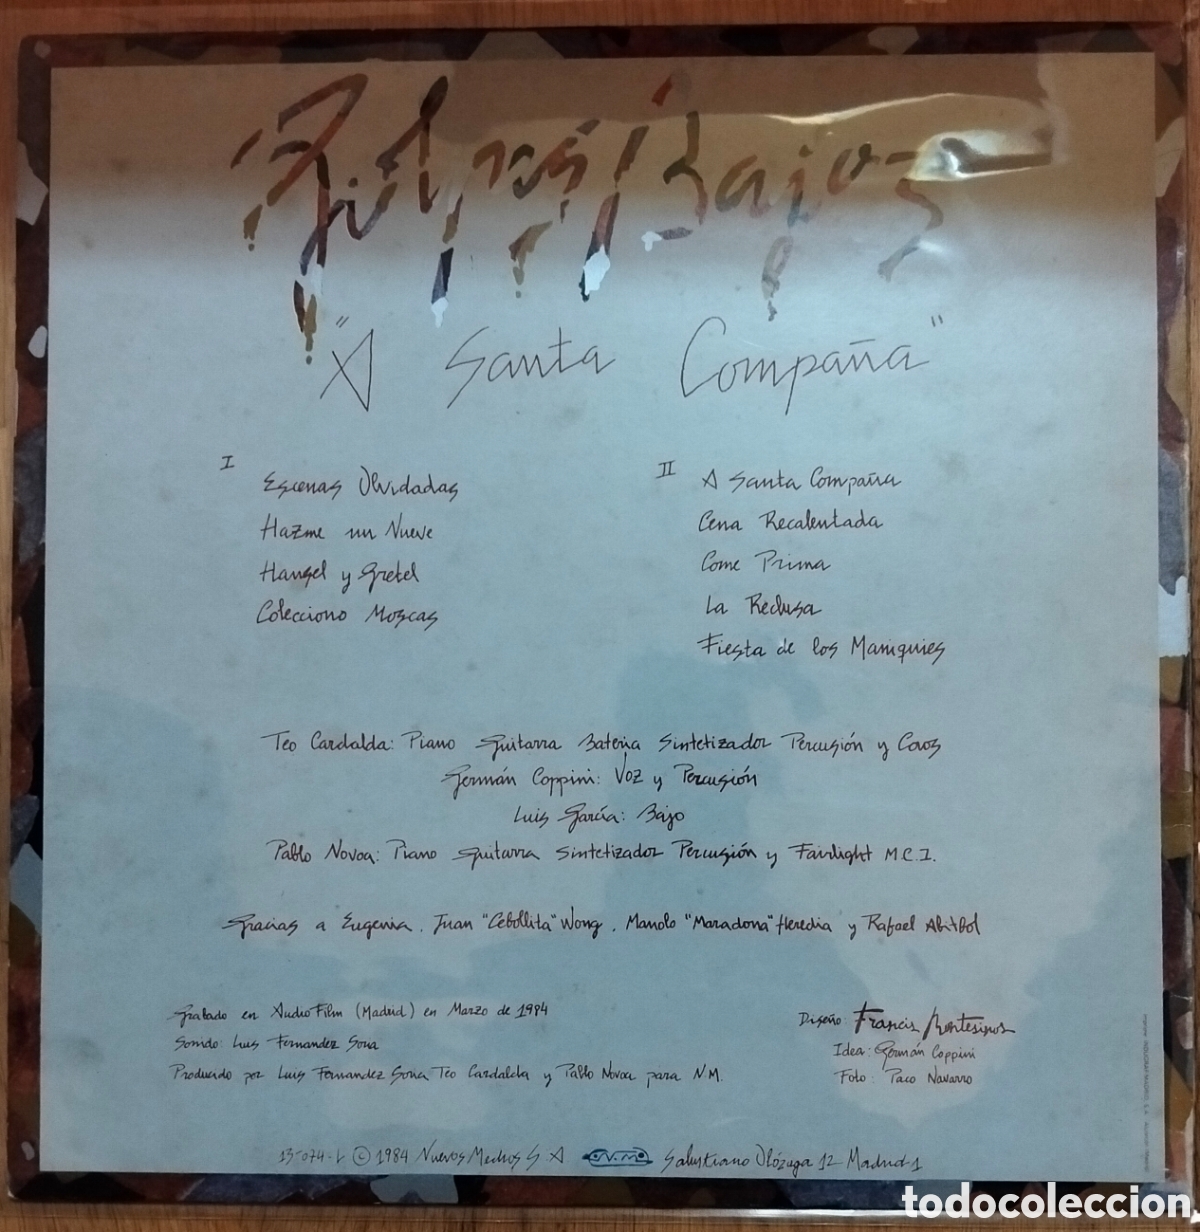 Golpes Bajos
"A Santa Compaña"
I
Escenas Olvidadas
Hazme un Nueve
Hansel y Gretel
Colecciono Moscas
II
A Santa Compaña
Cena Recalentada
Come Prima
La Reclusa
Fiesta de los Maniquies
Teo Cardalda: Piano Guitarra Bateria Sintetizador Percusión y Coros
Germán Coppini: Voz y Percusión
Luis García: Bajo
Pablo Novoa: Piano Guitarra Sintetizador Percusión y Fairlight M.C.I.
Gracias a Eugenia, Juan "Cebollita" Wong, Manolo "Maradona" Heredia y Rafael Abitbol
Grabado en Audio Film (Madrid) en Marzo de 1984
Sonido: Luis Fernandez Soria
Producido por Luis Fernandez Soria, Teo Cardalda y Pablo Novoa para N.M.
Diseño: Francis Montesinos
Idea: Germán Coppini
Foto: Paco Navarro
13-074-L © 1984 Nuevos Medios S A N.M. Salustiano Olózaga 12 Madrid-1
todocoleccion